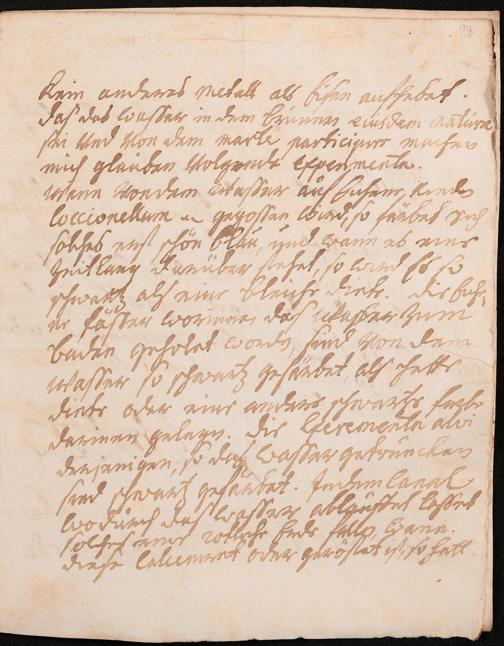 98
Kein anderes Metall als Eisen aufhebet.
daß das Wasser in dem brünnen eiusdem naturae
sei und von dem marte participire machen
mich glauben volgende Experimenta.
Wann von dem Wasser auf
Coccionellum gegossen wird, so färbet sich
solches erst schön blau, und wann es eine
Zeitlang darüber stehet, so wird es so
schwartz als eine bleiche dinte. die
ne fässer worinnen das Wasser zum
baden geholet worden, sind von dem
Wasser so schwartz gefärbet, als hette
dinte oder eine andere schwartze farbe
darinnen gelegen. die Excrementa alvi
derjenigen, so daß Wasser getruncken
sind schwartz gefärbet. In dem Canal
wodurch das Wasser
solches eine rothe Erde wann
diese Calcinirt oder geröstet ist, so hatt